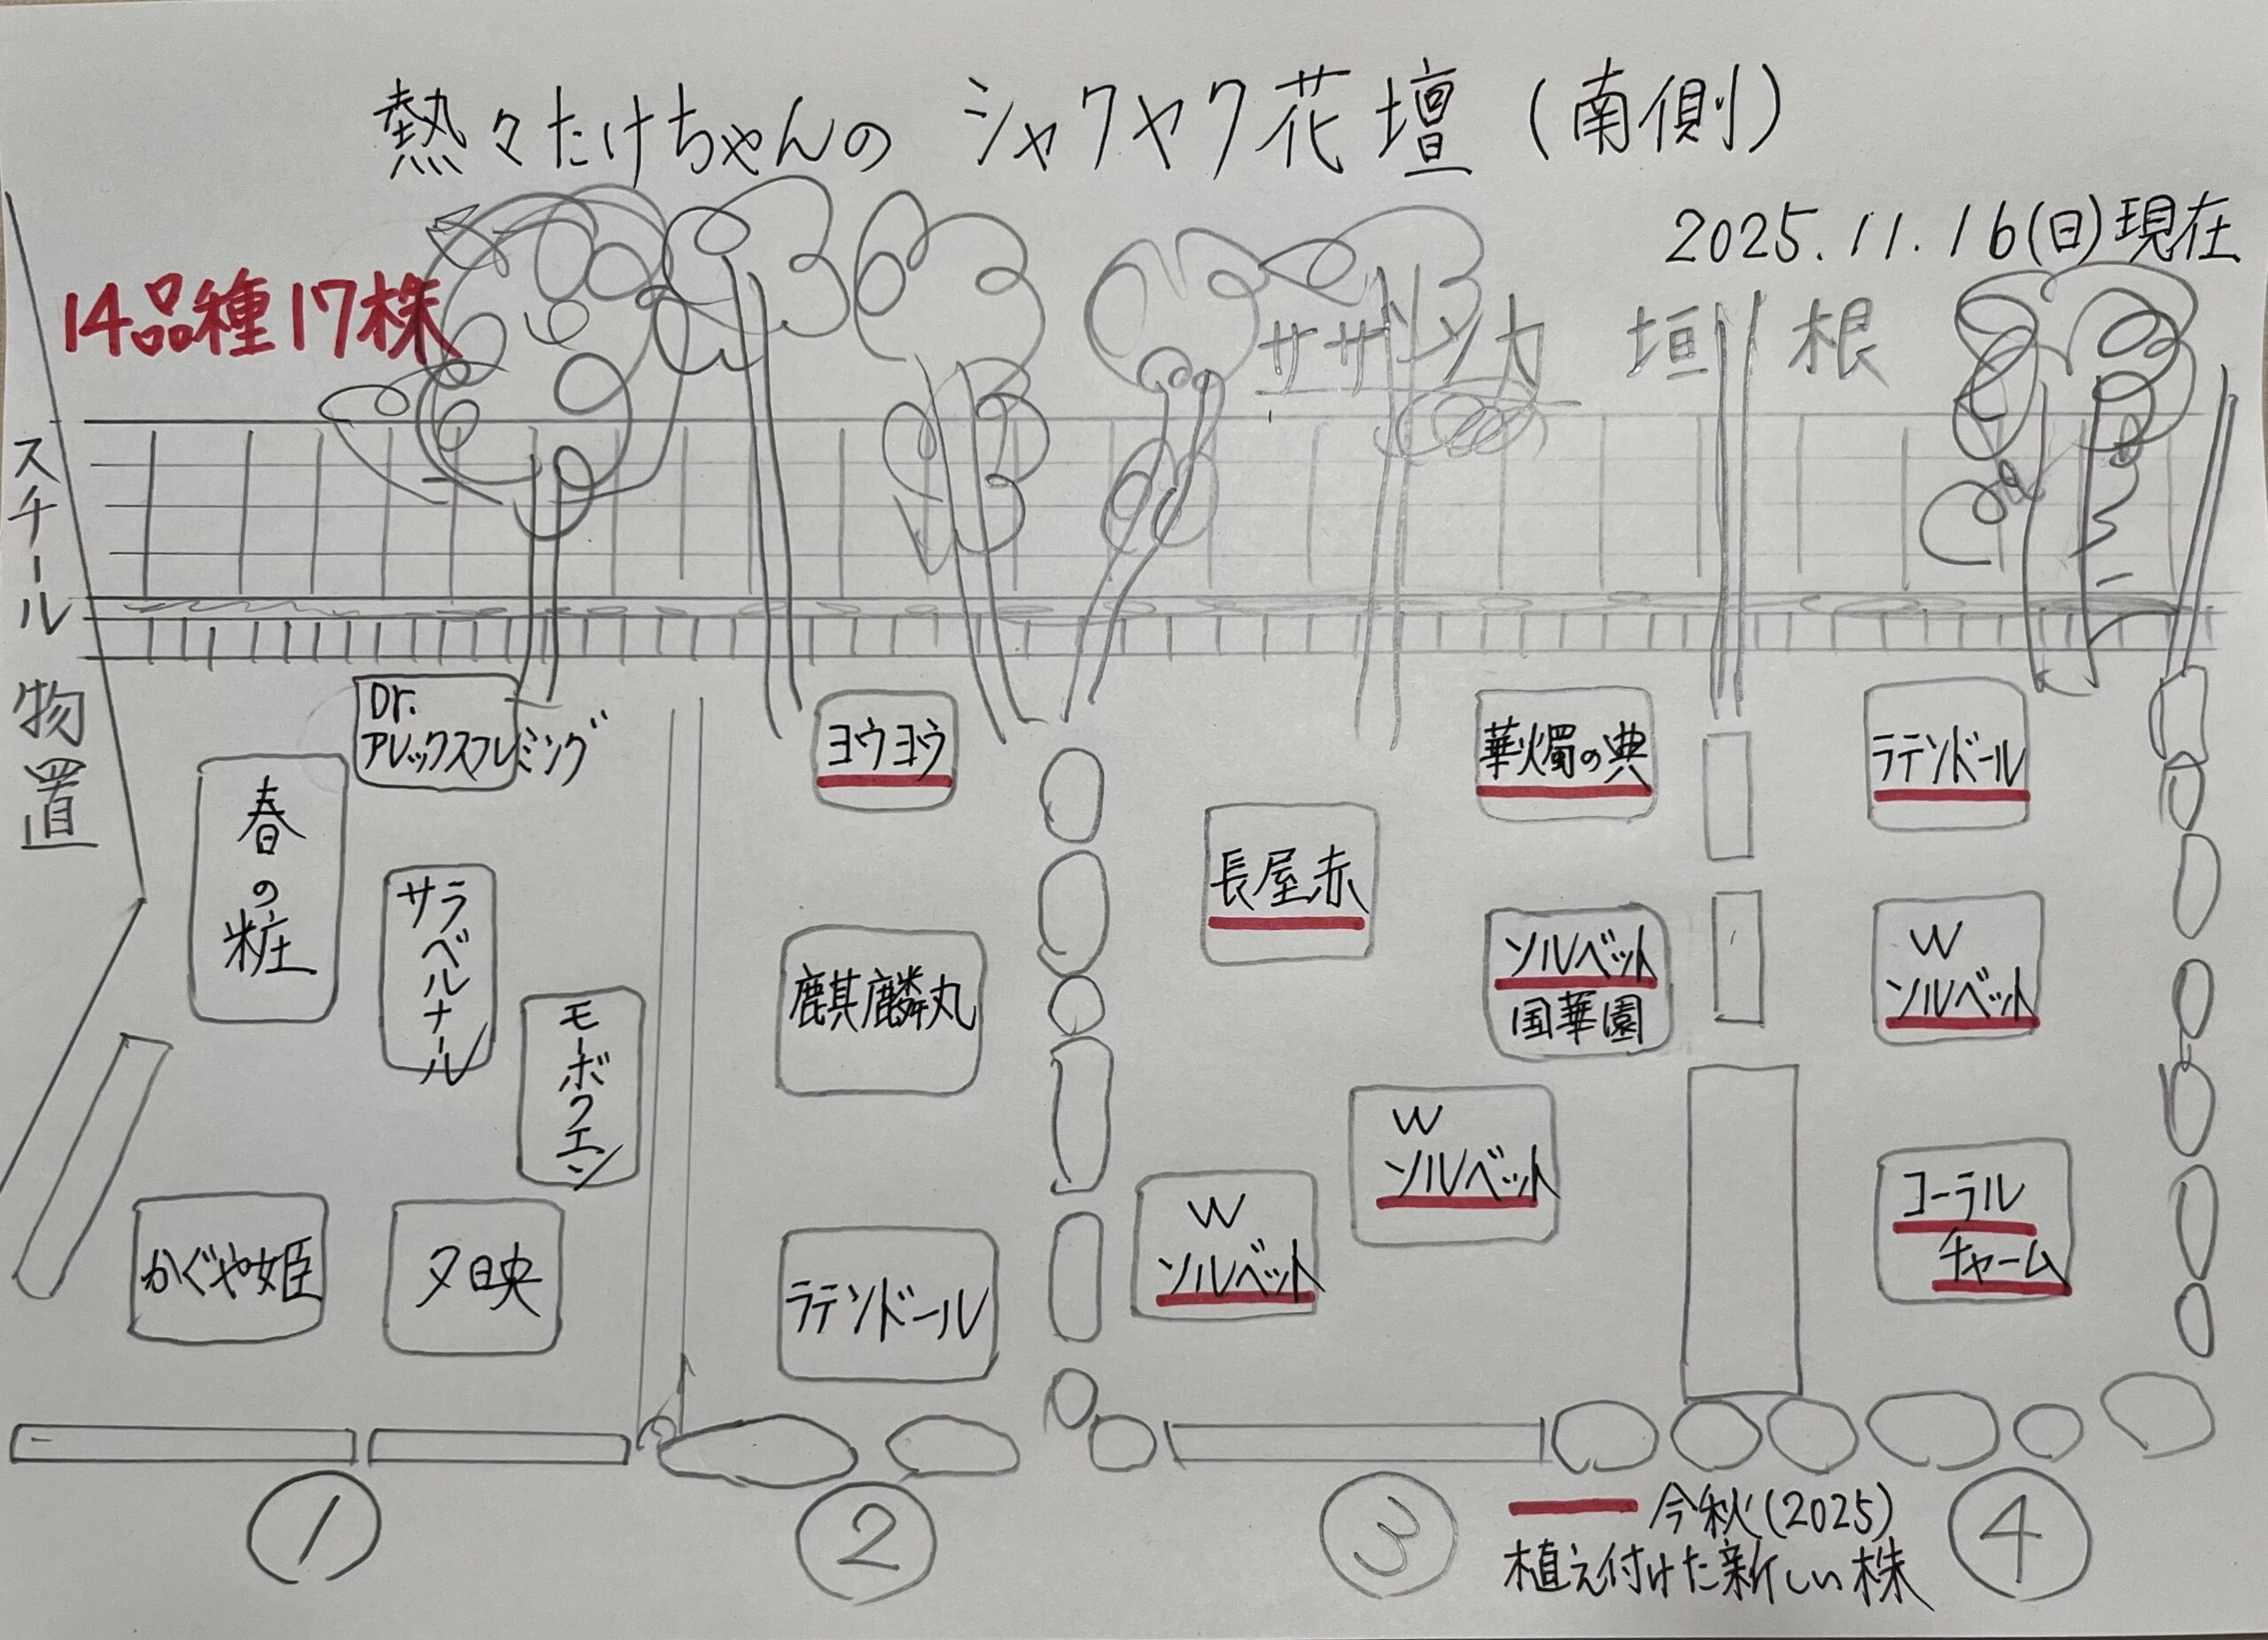 熱々たけちゃんの シャクヤク花壇(南側)
2025.11.16(日)現在
14品種17株
サザンカ 垣根
スチール物置
Dr.
アレックスフレミング
春の粧
サラベルナール
モーボクエン
かぐや姫
夕映
ヨウヨウ
麒麟丸
ラテンドール
長屋赤
華燭の典
ソルベット
国華園
W
ソルベット
W
ソルベット
ラテンドール
W
ソルベット
コーラル
チャーム
①
②
③
④
今秋(2025)
植え付けた新しい株